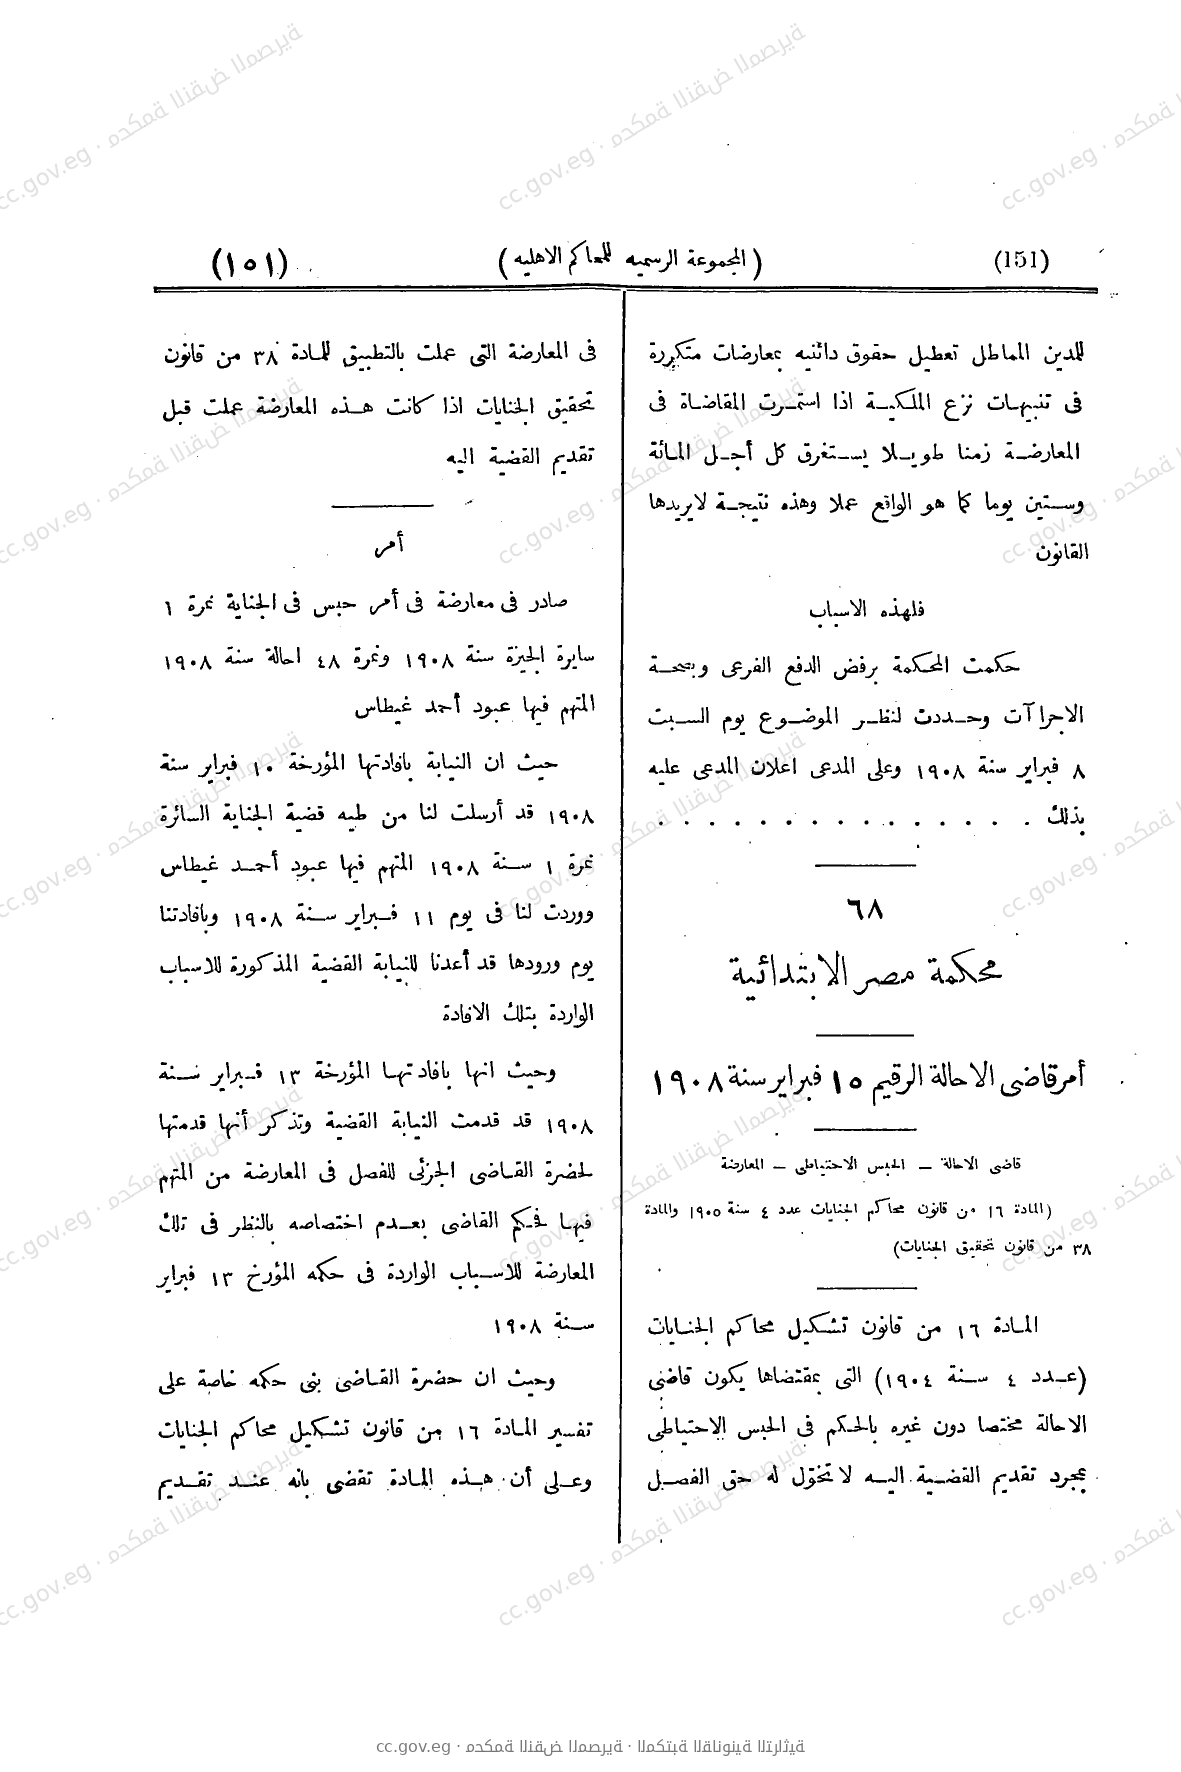 (151) (المجموعة الرسميه للمحاكم الاهليه) (١٥١)
للمدين المماطل تعطيل حقوق دائنيه بمعارضات متكررة
فى تنبيهات نزع الملكية اذا استمرت المقاضاة فى
المعارضة زمنا طويلا يستغرق كل أجل المائة
وستين يوما كما هو الواقع عملا وهذه نتيجة لايريدها
القانون
فلهذه الاسباب
حكمت المحكمة برفض الدفع الفرعى وبصحة
الاجراآت وحددت لنظر الموضوع يوم السبت
٨ فبراير سنة ١٩٠٨ وعلى المدعى اعلان المدعى عليه
بذلك . . . . . . . . . . . . . . .
٦٨
محكمة مصر الابتدائية
أمر قاضى الاحالة الرقيم ١٥ فبراير سنة ١٩٠٨
قاضى الاحالة – الحبس الاحتياطى – المعارضة
(المادة ١٦ من قانون محاكم الجنايات عدد ٤ سنة ١٩٠٥ والمادة
٣٨ من قانون تحقيق الجنايات)
المادة ١٦ من قانون تشكيل محاكم الجنايات
(عدد ٤ سنة ١٩٠٤) التى بمقتضاها يكون قاضى
الاحالة مختصا دون غيره بالحكم فى الحبس الاحتياطى
بمجرد تقديم القضية اليه لا تخوّل له حق الفصل
فى المعارضة التى عملت بالتطبيق للمادة ٣٨ من قانون
تحقيق الجنايات اذا كانت هذه المعارضة عملت قبل
تقديم القضية اليه
أمر
صادر فى معارضة فى أمر حبس فى الجناية نمرة ١
سايرة الجيزة سنة ١٩٠٨ ونمرة ٤٨ احالة سنة ١٩٠٨
المتهم فيها عبود أحمد غيطاس
حيث ان النيابة بافادتها المؤرخة ١٠ فبراير سنة
١٩٠٨ قد أرسلت لنا من طيه قضية الجناية السائرة
نمرة ١ سنة ١٩٠٨ المتهم فيها عبود أحمد غيطاس
ووردت لنا فى يوم ١١ فبراير سنة ١٩٠٨ وبافادتنا
يوم ورودها قد أعدنا للنيابة القضية المذكورة للاسباب
الواردة بتلك الافادة
وحيث انها بافادتها المؤرخة ١٣ فبراير سنة
١٩٠٨ قد قدمت النيابة القضية وتذكر أنها قدمتها
لحضرة القاضى الجزئى للفصل فى المعارضة من المتهم
فيها فحكم القاضى بعدم اختصاصه بالنظر فى تلك
المعارضة للاسباب الواردة فى حكمه المؤرخ ١٣ فبراير
سنة ١٩٠٨
وحيث ان حضرة القاضى بنى حكمه خاصة على
تفسير المادة ١٦ من قانون تشكيل محاكم الجنايات
وعلى أن هذه المادة تقضى بانه عند تقديم
cc.gov.eg · محكمة النقض المصرية · المكتبة القانونية التراثية